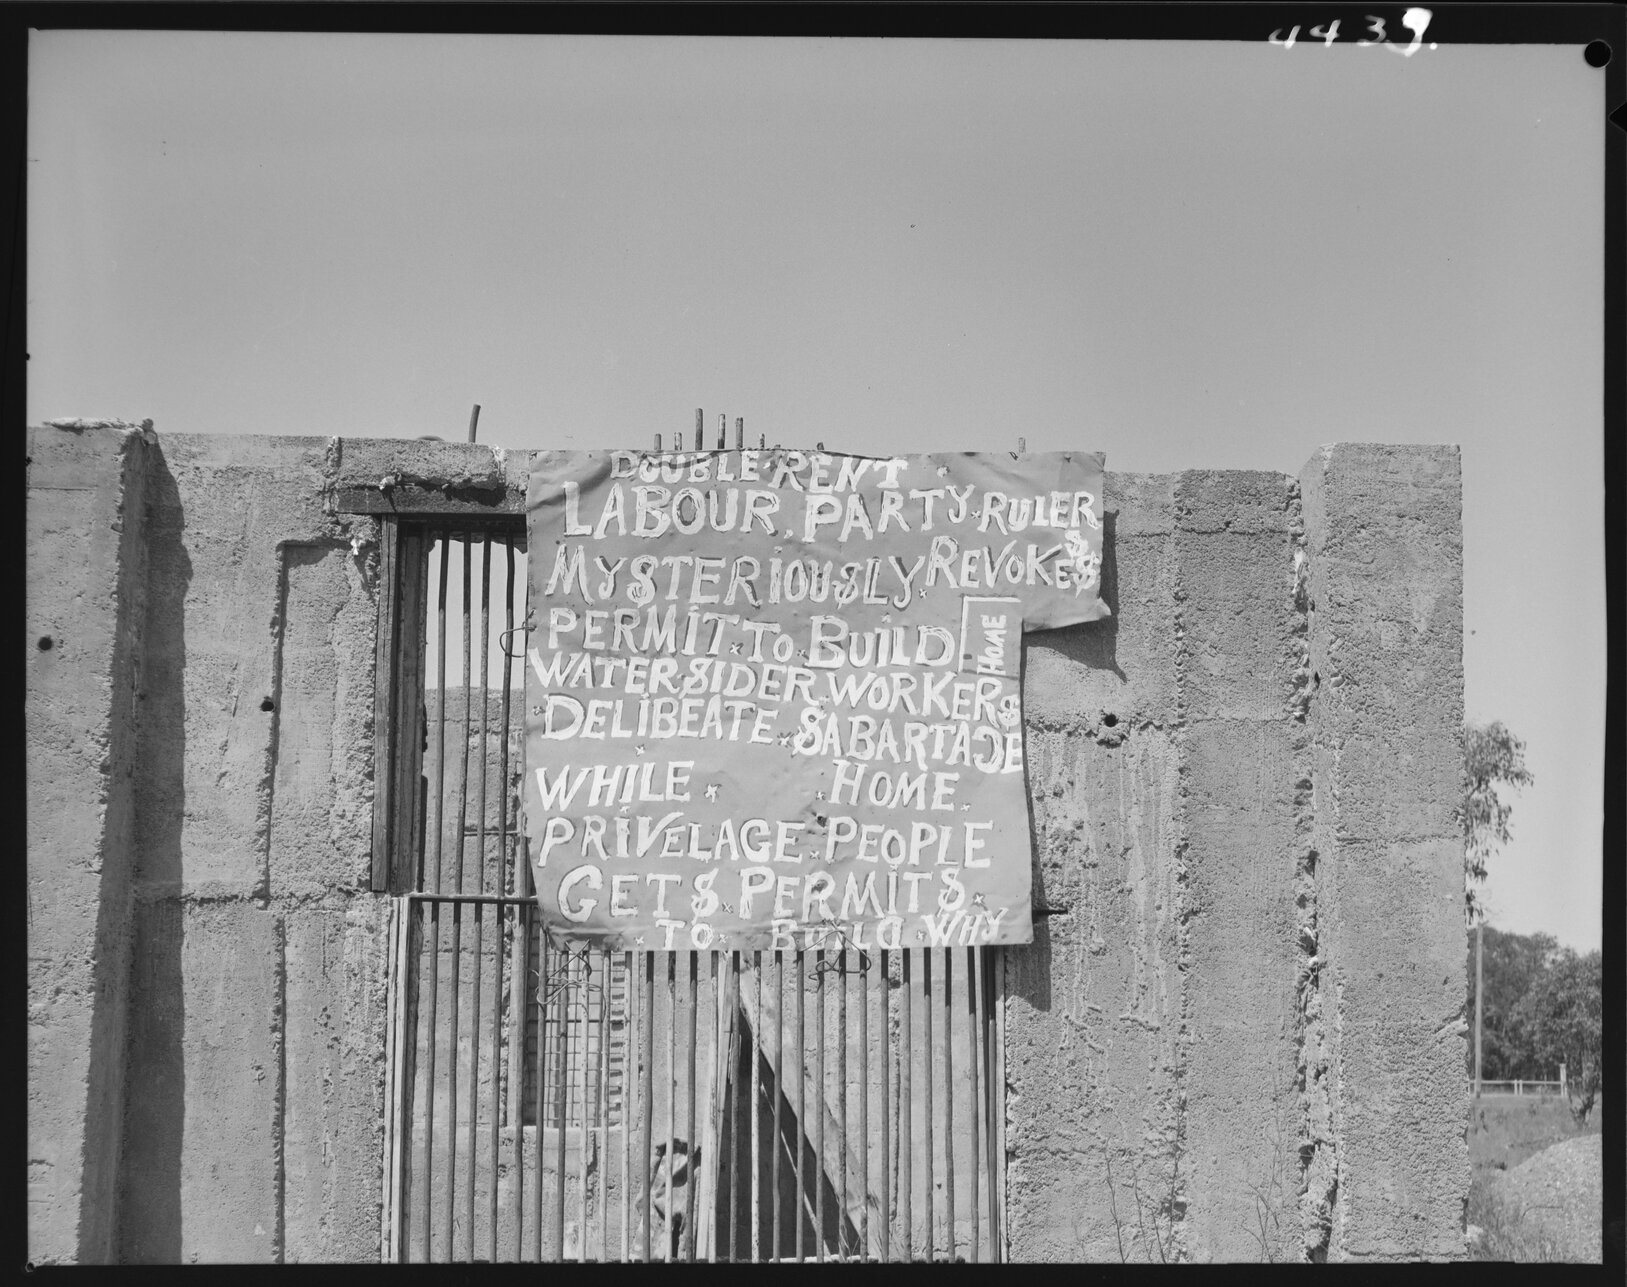 443
DOUBLE·RENT·
LABOUR. PARTY·RULER
MY$TERiOU$LY·REVOKE$$
PERMiT·To·BUiLD HOME
WATER·$IDER WORKER$
·DELiBEATE·$ABARTAGE
WHiLE· ·HOME·
PRiVELAGE·PEOPLE
GET$·PERMiT$·
·TO· BUiLd·WHY